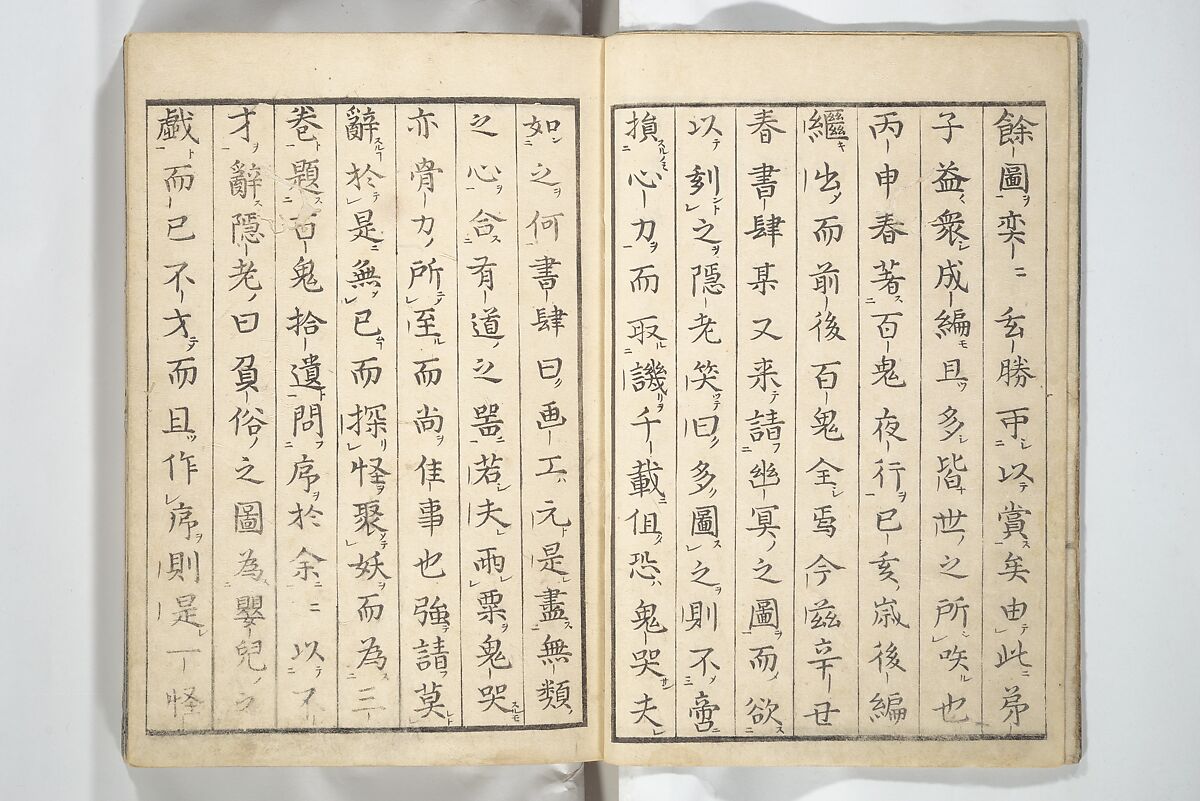 餘圖奕〻玄勝帀以賞矣由此弟
子益衆成編且多皆世之所唉也
丙申春著百鬼夜行已亥歳後編
繼出而前後百鬼全焉今茲辛丑
春書肆某又来請幽冥之圖而欲
以刻之隱老笑曰多圖之則不啻
損心力而取譏千載但恐鬼哭夫
如之何書肆曰画工元是盡無類
之心合有道之噐若夫雨粟鬼哭
亦骨力所至而尚佳事也強請莫
辭於是無已而探怪聚妖而為三
卷題百鬼拾遺問序於余〻以不
才辭隱老曰負俗之圖為嬰兒之
戯而已不才而且作序則是一怪